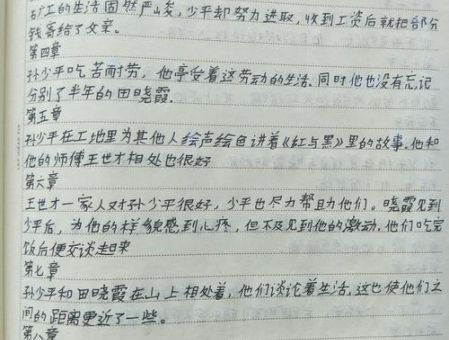 矿工的生活固然严峻，少平却努力进取，收到工资后就把部分
钱寄给了父亲。
第四章
孙少平吃苦而劳，他享受着这劳动的生活.同时他也没有忘记
分别了半年的田晓霞.
第五章
孙少平在工地里为其他人绘声绘色讲着《红与黑》里的故事.他和
他的师傅王世才相处也很好
第六章
王世才一家人对孙少平很好，少平也尽力帮助他们。晓霞见到
少平后，为他的样貌感到心疼，但不及见到他的激动，他们吃完
饭后便交谈起来
第七章
孙少平和田晓霞在山上相处着，他们谈论着生活，这也使他们之
间的距离更近了一些。
第八章